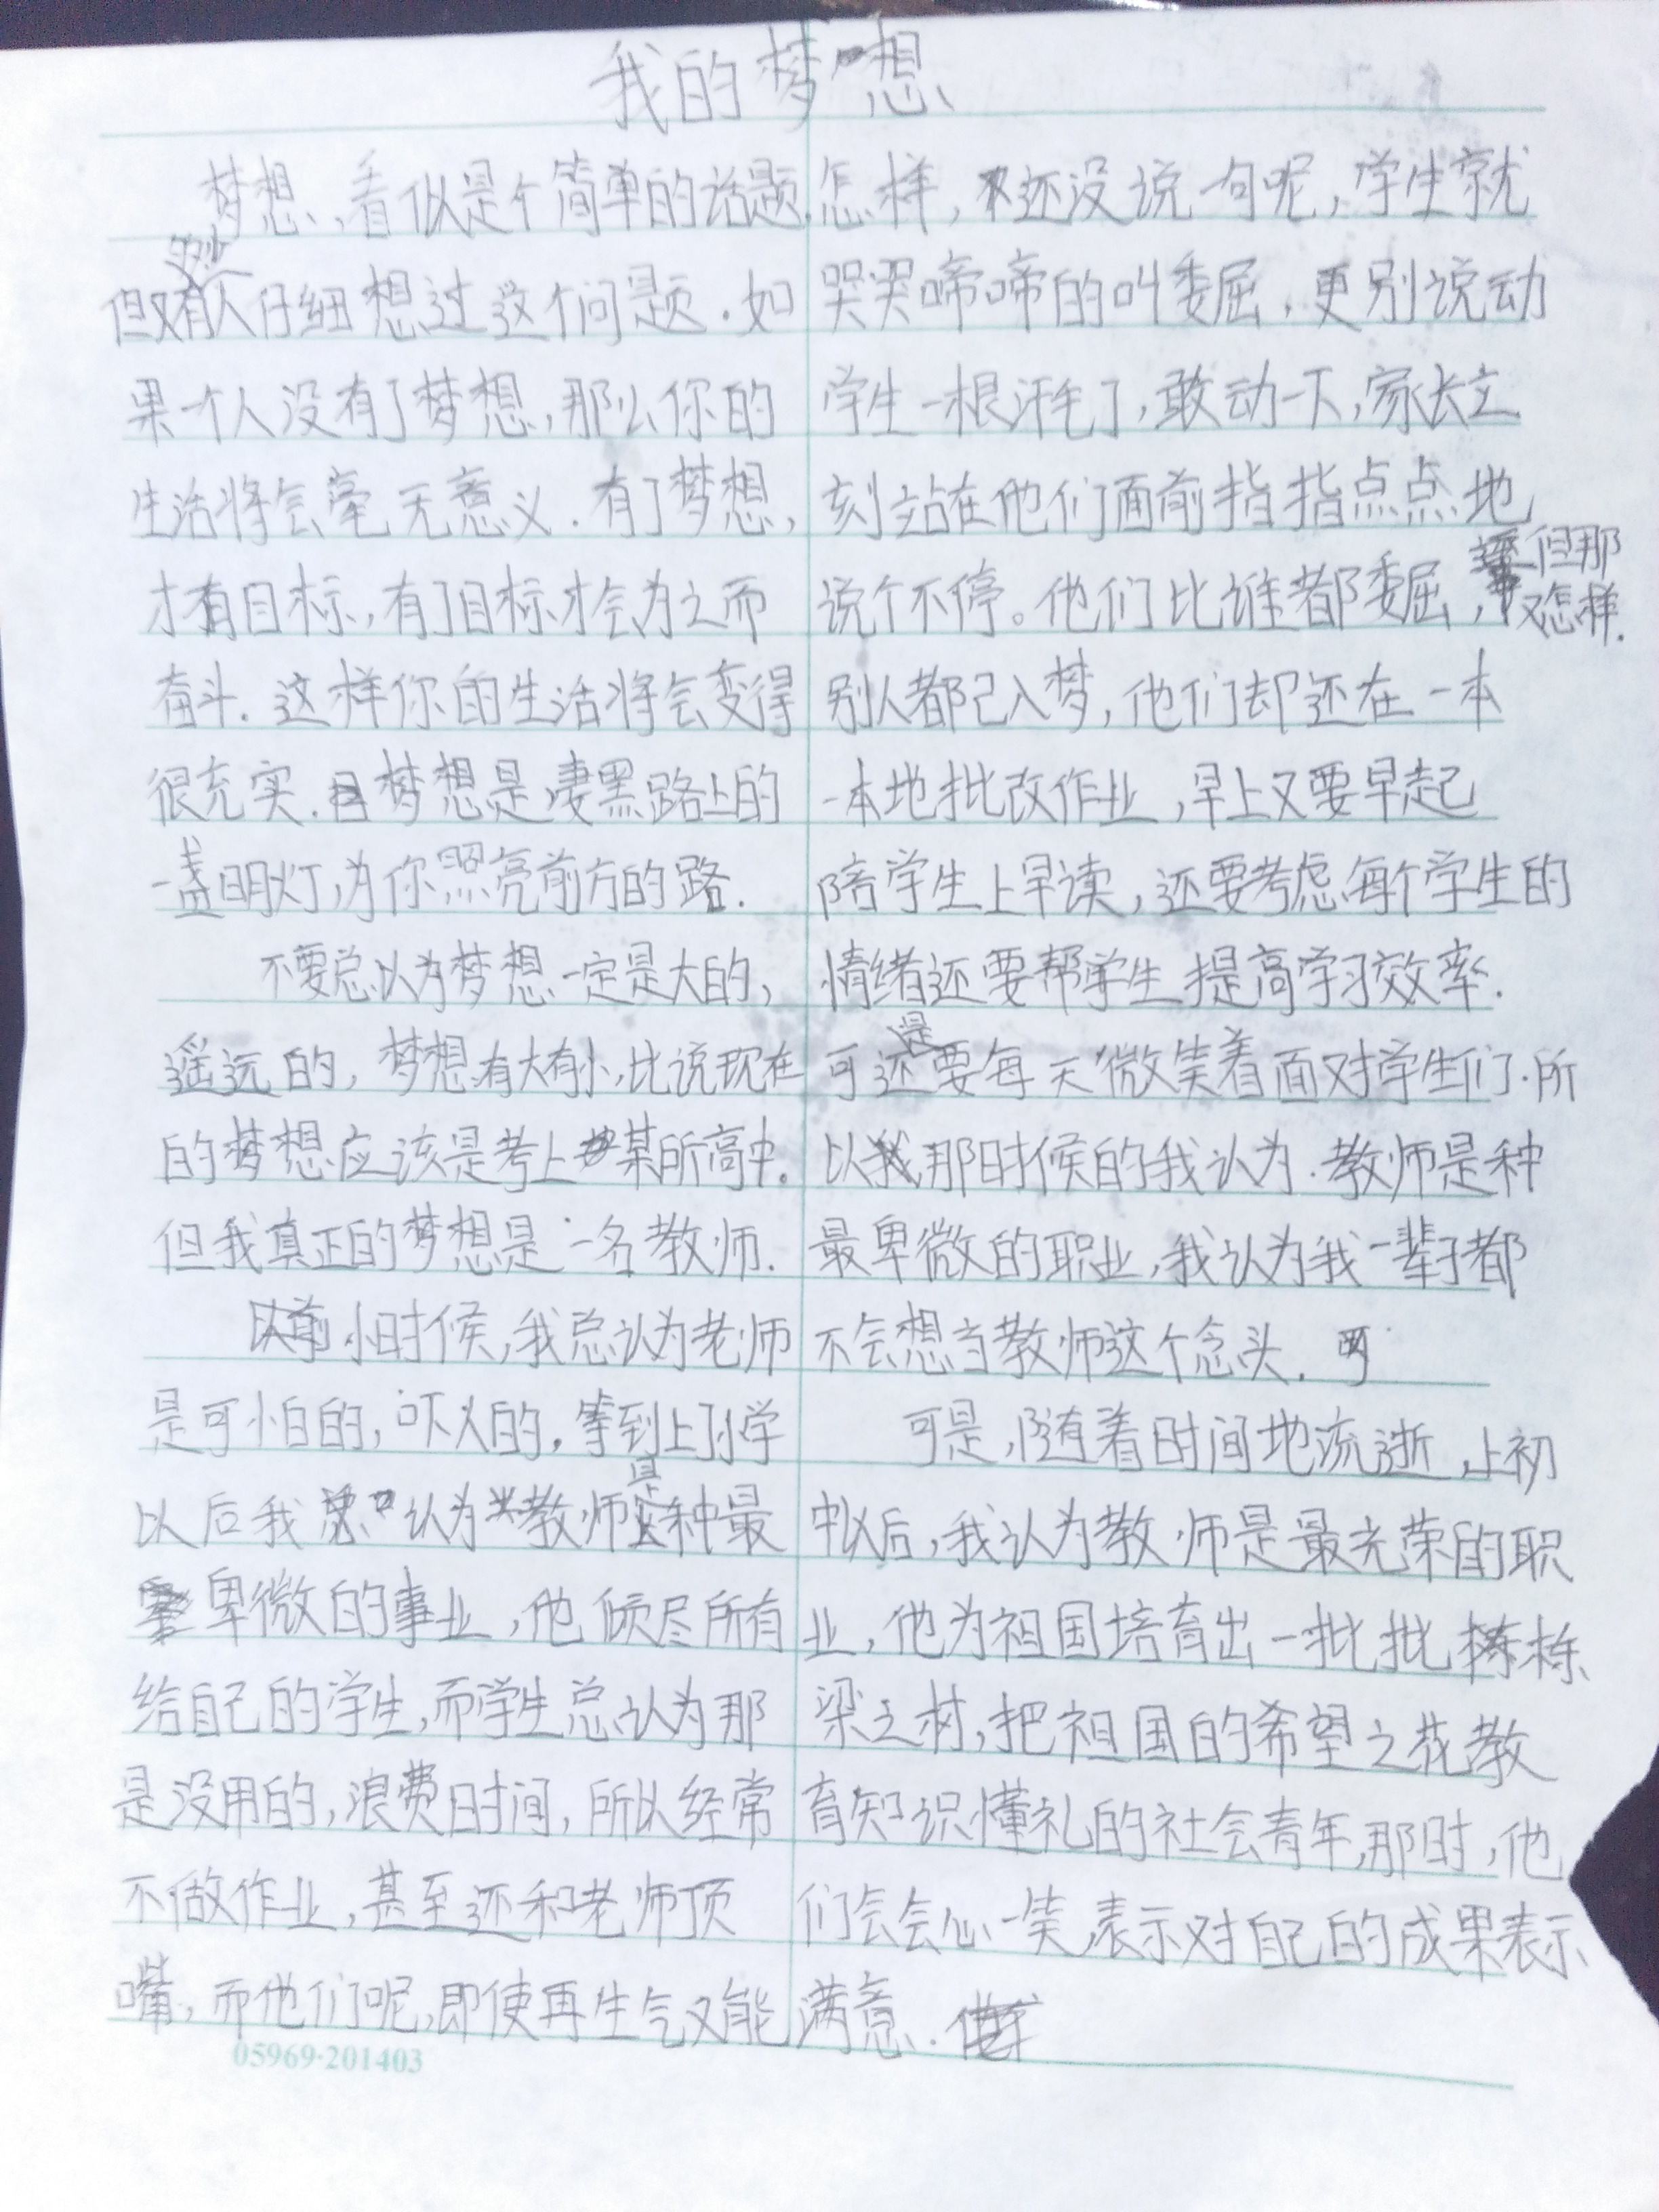 我的梦想
梦想,看似是个简单的话题,
但又有多少人仔细想过这个问题.如
果一个人没有了梦想,那么你的
生活将会毫无意义.有了梦想,
才有目标,有了目标才会为之而
奋斗.这样你的生活将会变得
很充实.梦想是凄黑路上的
一盏明灯,为你照亮前方的路.
不要总以为梦想一定是大的,
遥远的,梦想有大有小,比说现在
的梦想应该是考上某所高中。
但我真正的梦想是一名教师.
小时候,我总认为老师
是可怕的,吓人的,等到上了小学
以后我认为教师是种最
卑微的事业,他倾尽所有
给自己的学生,而学生总认为那
是没用的,浪费时间,所以经常
不做作业,甚至还和老师顶
嘴,而他们呢,即使再生气又能
怎样,还没说一句呢,学生就
哭哭啼啼的叫委屈,更别说动
学生一根汗毛了,敢动一下,家长立
刻站在他们面前指指点点地
说个不停。他们比谁都委屈,但那又怎样.
别人都已入梦,他们却还在一本
一本地批改作业,早上又要早起
陪学生上早读,还要考虑每个学生的
情绪还要帮学生提高学习效率.
可还是要每天微笑着面对学生们.所
以那时候的我认为.教师是种
最卑微的职业,我认为我一辈子都
不会想当教师这个念头.
可是,随着时间地流逝,上初
中以后,我认为教师是最光荣的职
业,他为祖国培育出一批批栋
梁之树,把祖国的希望之花教
育知识懂礼的社会青年,那时,他
们会会心一笑,表示对自己的成果表示
满意.
05969·201403